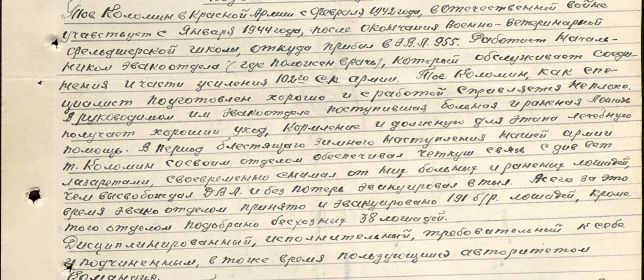 Тов Коломин в Красной Армии с февраля 1942 года, в Отечественной войне
участвует с Января 1944 года, после окончания Военно-Ветеринарной
фельдшерской школы, откуда прибыл в ЭВЛ 955. Работает Началь-
ником эвакоотдела (где положен врач), который обслуживает соеди-
нения и части усиления 102го с.к. армии. Тов Коломин, как спе-
циалист подготовлен хорошо и с работой справляется неплохо.
В руководимом им эвакоотделе поступившая больная и раненая лошадь
получает хороший уход, кормление и должную для этапа лечебную
помощь. В период блестящего зимнего наступления нашей армии
т. Коломин со своим отделом обеспечивал четкую связь с див вет
лазаретами, своевременно снимал от них больных и раненых лошадей
чем высвобождал Д.В.Л. и без потерь эвакуировал в тыл. Всего за это
время эвако отделом принято и эвакуировано 191 б/р. лошадей, кроме
того отделом подобрано бесхозных 38 лошадей.
Дисциплинированный, исполнительный, требовательный к себе
и подчиненным, в тоже время пользующийся авторитетом
командир.